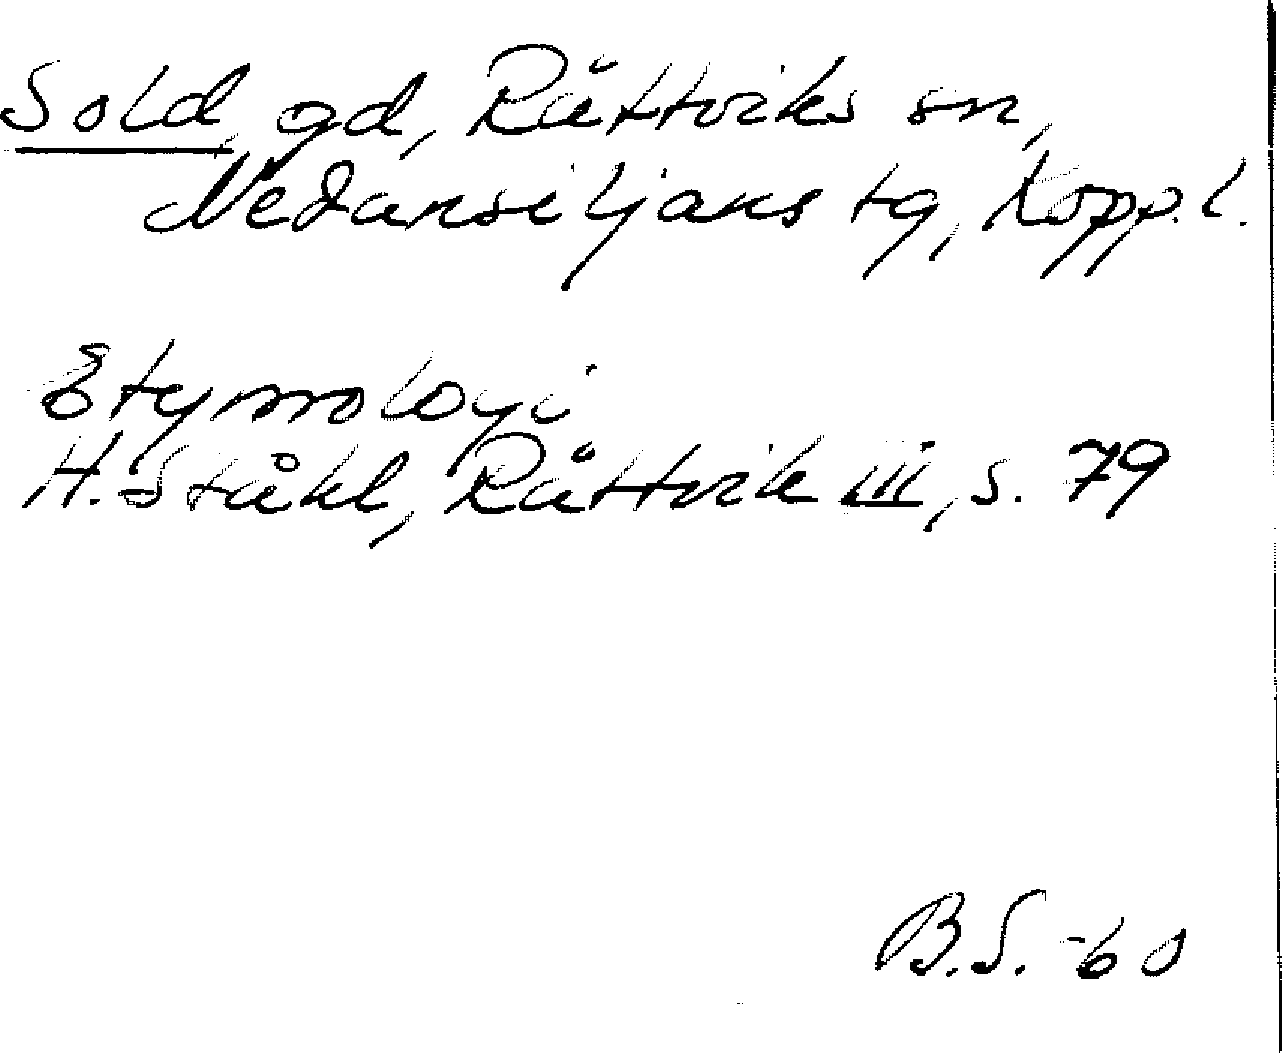 Sold, gd, Rättviks sn,
Nedansiljans tg, Kopp.l.
Etymologi
H. Ståhl, Rättvik III, s. 79
B.S. -60